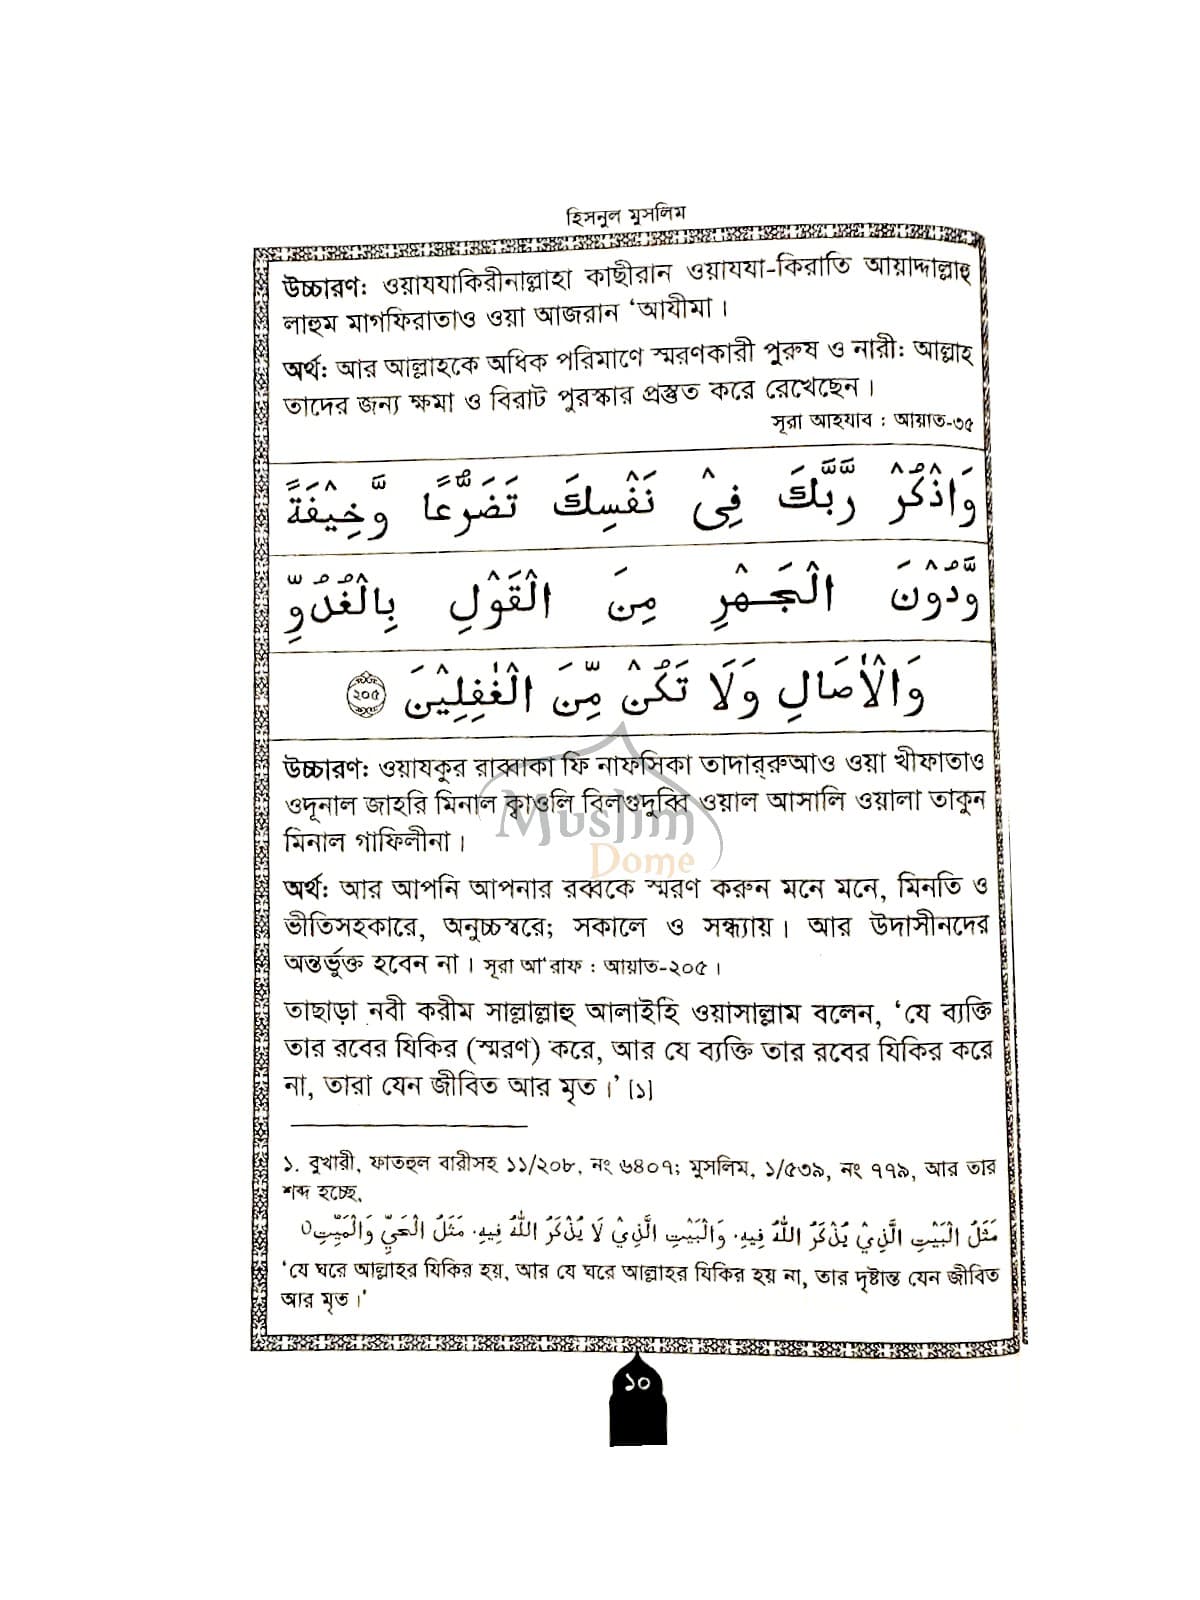 হিসনুল মুসলিম
উচ্চারণ: ওয়াযযাকিরীনাল্লাহা কাছীরান ওয়াযযা-কিরাতি আয়াদ্দাল্লাহু
লাহুম মাগফিরাতাও ওয়া আজরান ‘আযীমা।
অর্থ: আর আল্লাহকে অধিক পরিমাণে স্মরণকারী পুরুষ ও নারী: আল্লাহ
তাদের জন্য ক্ষমা ও বিরাট পুরস্কার প্রস্তুত করে রেখেছেন।
সূরা আহযাব : আয়াত-৩৫
وَاذْكُرْ رَّبَّكَ فِيْ نَفْسِكَ تَضَرُّعًا وَّخِيْفَةً
وَّدُوْنَ الْجَهْرِ مِنَ الْقَوْلِ بِالْغُدُوِّ
وَالْاٰصَالِ وَلَا تَكُنْ مِّنَ الْغٰفِلِيْنَ ২০৫
উচ্চারণ: ওয়াযকুর রাব্বাকা ফি নাফসিকা তাদার্‌রুআও ওয়া খীফাতাও
ওদূনাল জাহরি মিনাল ক্বাওলি বিলগুদুব্বি ওয়াল আসালি ওয়ালা তাকুন
মিনাল গাফিলীনা।
Muslim
Dome
অর্থ: আর আপনি আপনার রব্বকে স্মরণ করুন মনে মনে, মিনতি ও
ভীতিসহকারে, অনুচ্চস্বরে; সকালে ও সন্ধ্যায়। আর উদাসীনদের
অন্তর্ভুক্ত হবেন না। সূরা আ'রাফ : আয়াত-২০৫।
তাছাড়া নবী করীম সাল্লাল্লাহু আলাইহি ওয়াসাল্লাম বলেন, ‘যে ব্যক্তি
তার রবের যিকির (স্মরণ) করে, আর যে ব্যক্তি তার রবের যিকির করে
না, তারা যেন জীবিত আর মৃত।’ [১]
১. বুখারী, ফাতহুল বারীসহ ১১/২০৮, নং ৬৪০৭; মুসলিম, ১/৫৩৯, নং ৭৭৯, আর তার
শব্দ হচ্ছে,
مَثَلُ الْبَيْتِ الَّذِيْ يُذْكَرُ اللّٰهُ فِيهِ، وَالْبَيْتِ الَّذِيْ لَا يُذْكَرُ اللّٰهُ فِيهِ، مَثَلُ الْحَيِّ وَالْمَيِّتِ০
‘যে ঘরে আল্লাহর যিকির হয়, আর যে ঘরে আল্লাহর যিকির হয় না, তার দৃষ্টান্ত যেন জীবিত
আর মৃত।’
১০